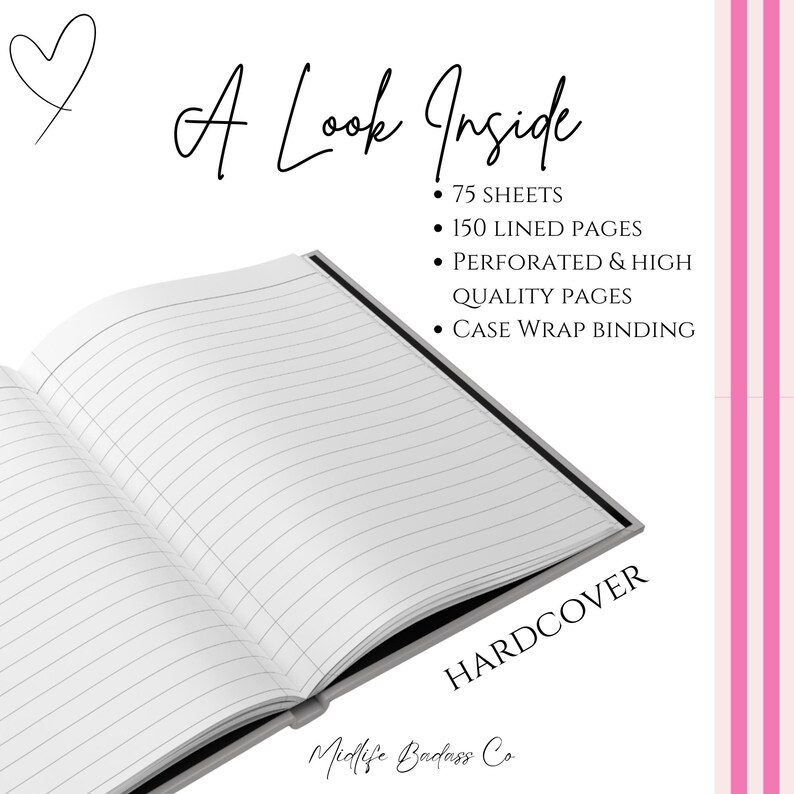 A Look Inside
• 75 sheets
• 150 lined pages
• Perforated & high
quality pages
• Case Wrap binding
HARDCOVER
Midlife Badass Co